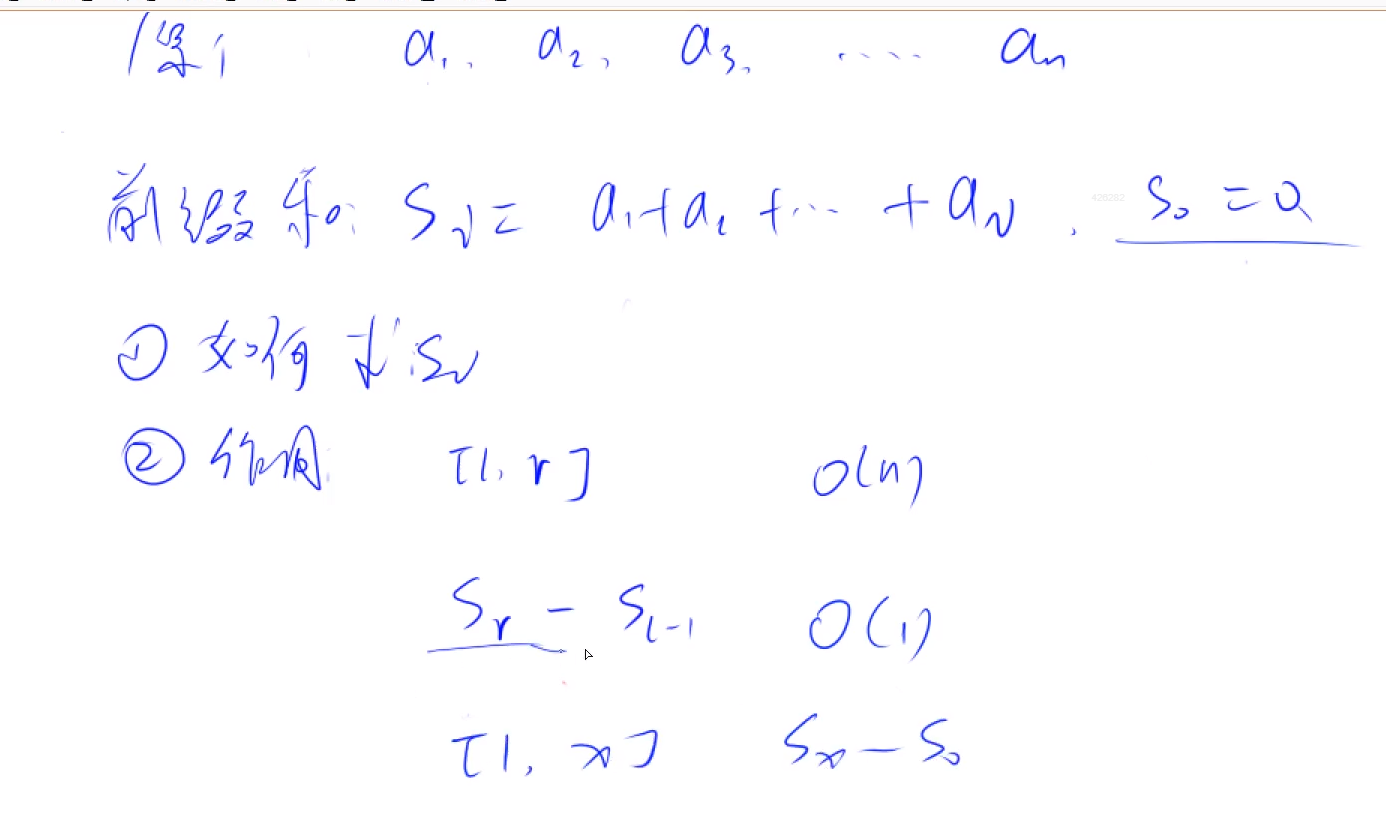 a₁, a₂, a₃, ..... aₙ
前缀和: Sᵢ = a₁+a₂ + ... + aᵢ. S₀ = 0
① 如何求 Sᵢ
② 作用: [l, r] O(n)
Sᵣ - Sₗ₋₁ O(1)
[1, x] Sₓ - S₀
426282